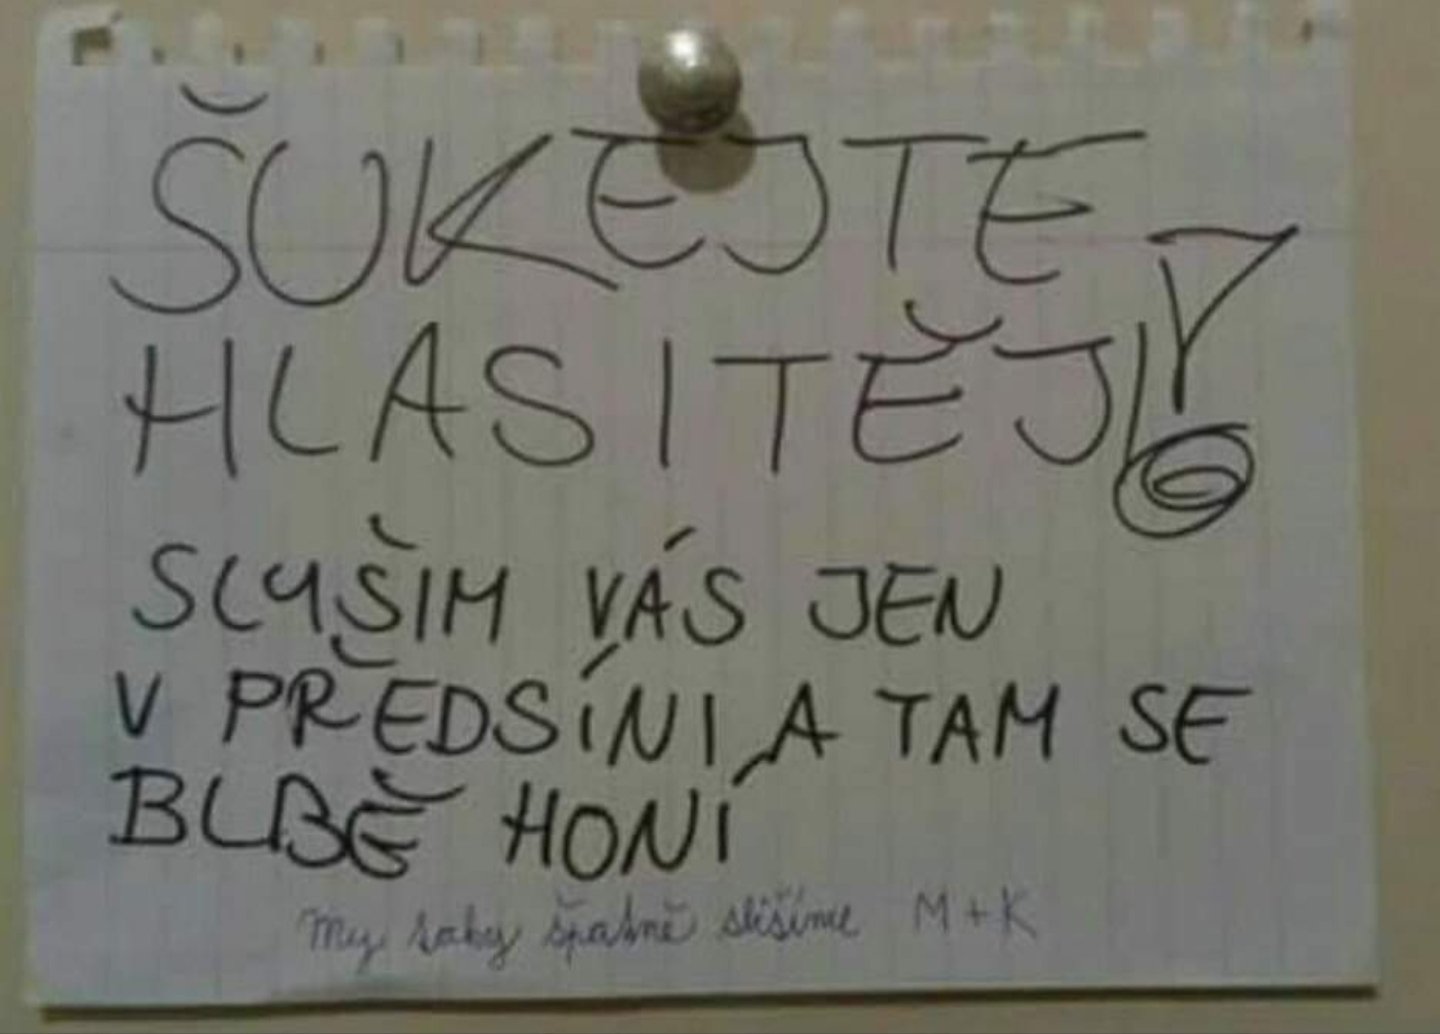 ŠUKEJTE
HLASITĚJI!
SLYŠIM VÁS JEN
V PŘEDSÍNI A TAM SE
BLBĚ HONÍ
My taky špatně slišíme M+K